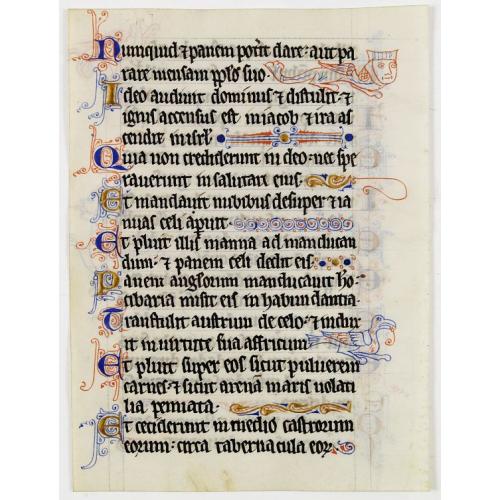 Numquid ⁊ panem pot̄it dare: aut pa
rare mensam pp̄lo suo.
Ideo audiuit dominus ⁊ distulit: ⁊
ignis accensus est in iacob ⁊ ira as
cendit in isrl̄.
Quia non crediderunt in deo: nec spe
rauerunt in salutari eius.
Et mandauit nubibus desuper ⁊ ia
nuas celi aperuit.
Et pluit illis manna ad manducan
dum: ⁊ panem celi dedit eis.
Panem angelorum manducauit ho
cibaria misit eis in habundantia
Transtulit austrum de celo: ⁊ indux
it in uirtute sua affricum
Et pluit super eos sicut puluerem
carnes: ⁊ sicut arenam maris uolati
lia pennata.
Et ceciderunt in medio castrorum
eorum: circa tabernacula eoꝝ.